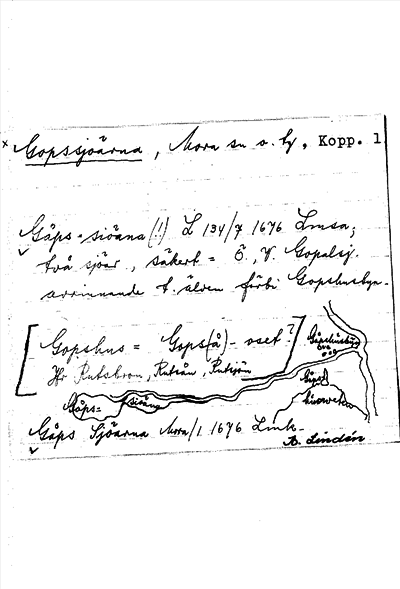 × Gopssjöarna, Mora sn o. by, Kopp. l
Gåps-siöana (!) L 134/7 1676 Lmsa;
två sjöar, säkert = Ö., V. Gopalsj.
avrinnande t. älven förbi Gopshusbyn.
[Gopshus = Gops(å)-oset?]
Jfr Rutsbron, Rutsån, Rutsjön
Gåpshusbÿn
Gåps=
siöana
Gåps
Gåps Sjöarna Mora/1 1676 Lmk.
B. Lindén